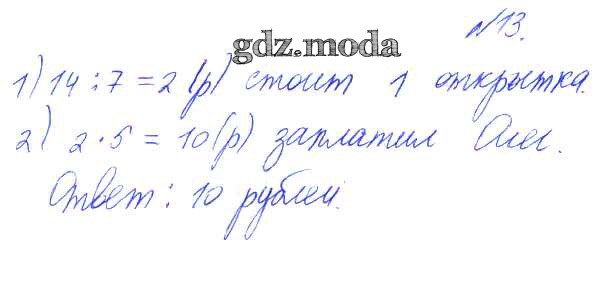 №13.
gdz.moda
1) 14 : 7 = 2 (р) стоит 1 открытка.
2) 2 · 5 = 10 (р) заплатил Оли.
Ответ: 10 рублей.